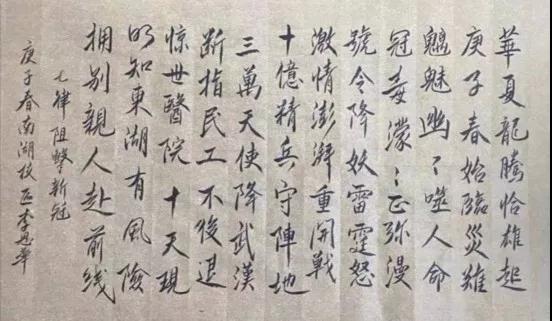 華夏龍騰恰雄起
庚子春始臨災難
魑魅幽〻噬人命
冠毒濛〻正弥漫
號令降妖雷霆怒
激情澎湃重開戰
十億精兵守陣地
三萬天使降武漢
断指民工不後退
惊世醫院十天現
明知東湖有風險
拥别親人赴前线
七律阻擊新冠
庚子春南湖校区李華